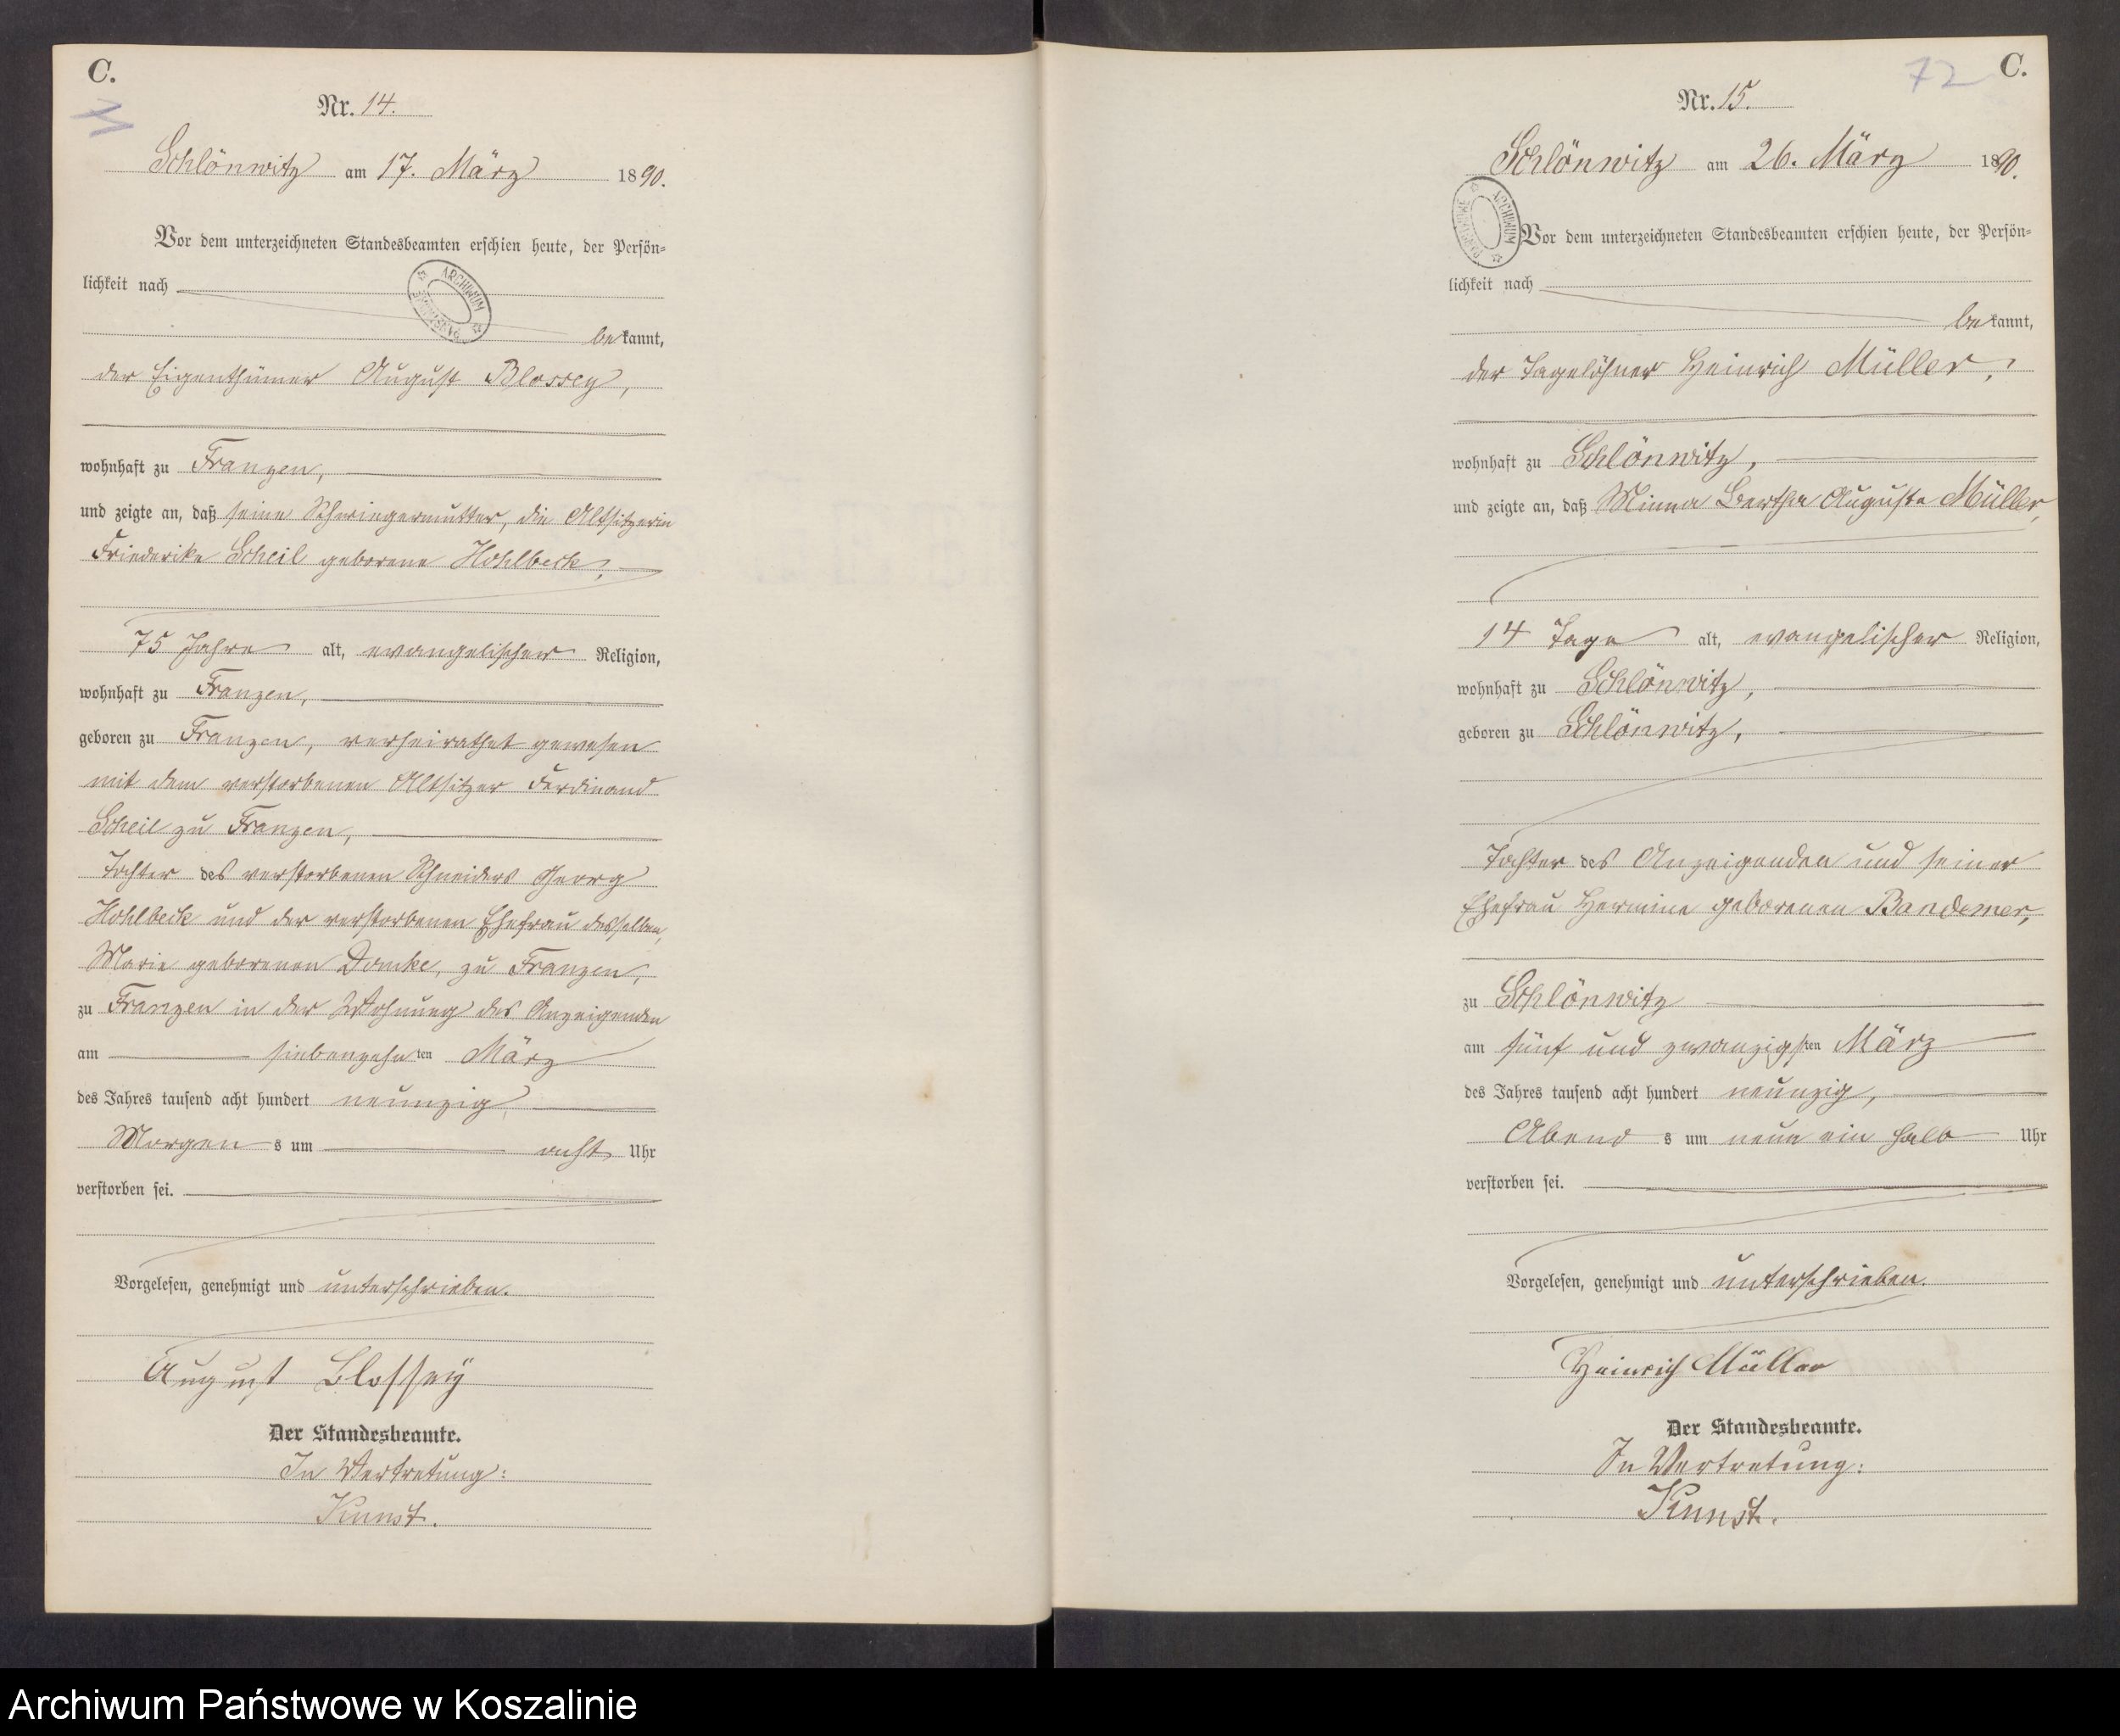 C.
Nr. 14.
Schlönwitz am 17. März 1890.
Vor dem unterzeichneten Standesbeamten erschien heute, der Persön-
lichkeit nach
ARCHIWUM PAŃSTWOWE
bekannt,
der Eigenthümer August Blossey,
wohnhaft zu Franzen,
und zeigte an, daß seine Schwiegermutter, die Altsitzerin
Friederike Scheil geborene Hohlbeck,
75 Jahre alt, evangelischer Religion,
wohnhaft zu Franzen,
geboren zu Franzen, verheirathet gewesen
mit dem verstorbenen Altsitzer Ferdinand
Scheil zu Franzen,
Tochter des verstorbenen Schneiders Georg
Hohlbeck und der verstorbenen Ehefrau desselben,
Marie geborenen Domke, zu Franzen,
zu Franzen in der Wohnung des Anzeigenden
am siebenzehnten März
des Jahres tausend acht hundert neunzig,
Morgens um acht Uhr
verstorben sei.
Vorgelesen, genehmigt und unterschrieben.
August Blossey
Der Standesbeamte.
In Vertretung:
Kunst.
72 C.
Nr. 15.
Schlönwitz am 26. März 1890.
ARCHIWUM PAŃSTWOWE
Vor dem unterzeichneten Standesbeamten erschien heute, der Persön-
lichkeit nach
bekannt,
der Tagelöhner Heinrich Müller,
wohnhaft zu Schlönwitz,
und zeigte an, daß Minna Bertha Auguste Müller,
14 Tage alt, evangelischer Religion,
wohnhaft zu Schlönwitz,
geboren zu Schlönwitz,
Tochter des Anzeigenden und seiner
Ehefrau Hermine geborenen Bandemer,
zu Schlönwitz
am fünf und zwanzigsten März
des Jahres tausend acht hundert neunzig,
Abends um neun ein halb Uhr
verstorben sei.
Vorgelesen, genehmigt und unterschrieben.
Heinrich Müller
Der Standesbeamte.
In Vertretung:
Kunst.
Archiwum Państwowe w Koszalinie